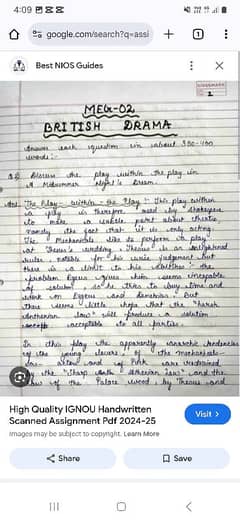 4:09
google.com/search?q=assi
1
Best NIOS Guides
1
MEG-02
BRITISH DRAMA
Answer each question in about 300-400
words:-
Discuss the play within the play in
A Midsummer Night's Dream.
Ans: The Play - within - the Play :- This play within
a play is therefore used by Shakespeare
to make a subtle point about theatre
namely the fact that it is only acting
The Mechanicals like to perform a play
at Theseus's wedding. Theseus is an enlightened
ruler, notable for his wise judgement but
there is a limit to his abilities. The
problem Egeus gives him seems incapable
of solution so he tries to buy time and
work on Egeus and Demetrius. But
there seems little hope that the "harsh
Athenian law" will produce a solution
acceptable to all parties.
In this play the apparently anarchic tendencies
of the young lovers, of the mechanicals
and of Puck are restrained
by the "sharp Athenian law" and the
of the Palace wood by Theseus and
High Quality IGNOU Handwritten
Scanned Assignment Pdf 2024-25
Visit >
Images may be subject to copyright. Learn More
Share
Save